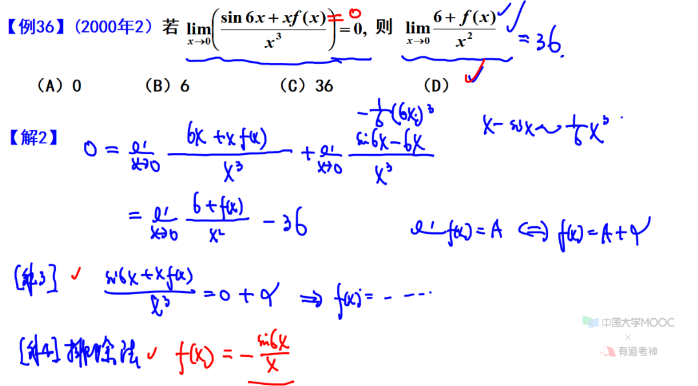 【例36】(2000年2) 若 lim x→0 ( (sin 6x + xf(x)) / x³ ) = 0, 则 lim x→0 (6 + f(x)) / x² = 36.
= 0
(A) 0 (B) 6 (C) 36 (D)
【解2】 0 = lim x→0 (6x + x f(x)) / x³ + lim x→0 (sin6x - 6x) / x³
-1/6 (6x)³
x - sinx ~ 1/6 x³
= lim x→0 (6 + f(x)) / x² - 36
lim f(x) = A ⇔ f(x) = A + α
[解3] (sin6x + x f(x)) / x³ = 0 + α ⇒ f(x) = - ....
[解4] 排除法 f(x) = - sin6x / x
中国大学MOOC
×
有道考神